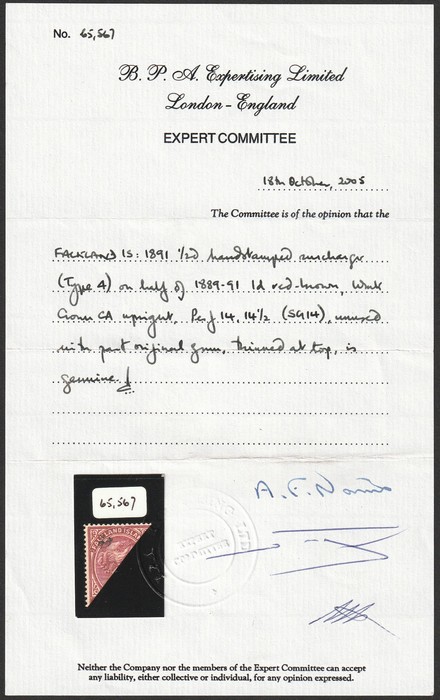 No. 65,567
B. P. A. Expertising Limited
London - England
EXPERT COMMITTEE
18th October, 2005
The Committee is of the opinion that the
FALKLAND IS: 1891 ½d handstamped surcharge
(Type 4) on half of 1889-91 1d red-brown, Wmk
Crown CA upright, Perf 14, 14½ (SG14), unused
with part original gum, thinned at top, is
genuine.
65,567
FALKLAND ISLAN
A. F. Norris
LTD
Neither the Company nor the members of the Expert Committee can accept
any liability, either collective or individual, for any opinion expressed.